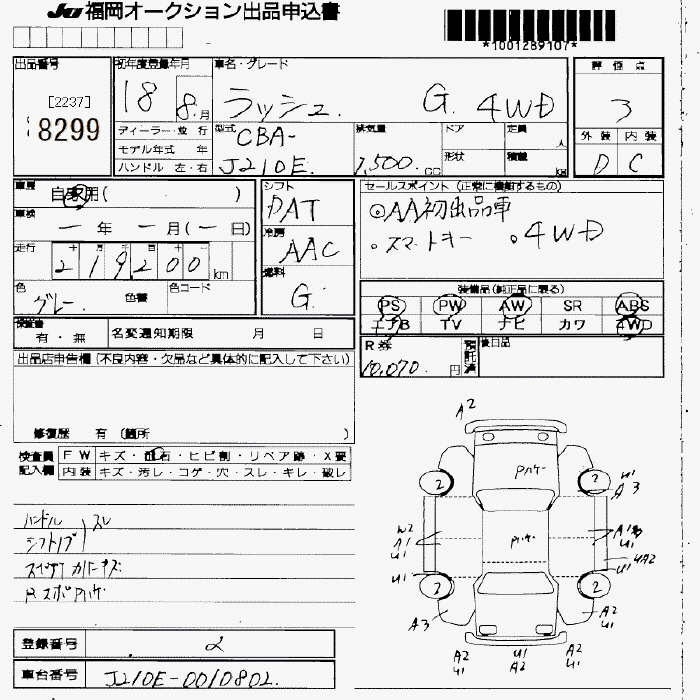 JU 福岡オークション出品申込書
*1001289107*
出品番号
[2237]
8299
初年度登録年月
18 8.月
車名・グレード
ラッシュ. G. 4WD
評価点
3
外装 内装
D C
ディーラー・並行
モデル年式 年
ハンドル 左・右
型式
CBA-
J210E.
排気量
1,500.cc
ドア
形状
定員
人
積載
kg
車歴
自家用( )
車検
ー年 ー月(ー日)
走行
十 万 千 百
219200 km
色
グレー.
色替
色コード
シフト
DAT
冷房
AAC
燃料
G.
セールスポイント (正常に機能するもの)
◎AA初出品車
。スマートキー 。4WD
装備品(純正品に限る)
PS PW AW SR ABS
エアB TV ナビ カワ 4WD
R券
10,070.円
預託済
後日品
検査書
有・無
名変通知期限 月 日
出品店申告欄(不良内容・欠品など具体的に記入して下さい)
修復歴 有 (箇所 )
検査員
記入欄
FW キズ・飛石・ヒビ割・リペア跡・X要
内装 キズ・汚レ・コゲ・穴・スレ・キレ・破レ
ハンドル スレ
シフトノブ
Rスポ
登録番号
2
車台番号
J210E-0010802.
A2
2
2
U1
A3
W2
A1
U1
A1
U1
UA2
U1
U1
2
2
A3
A2
U1
A2
U1
U1
A2
A2
U1